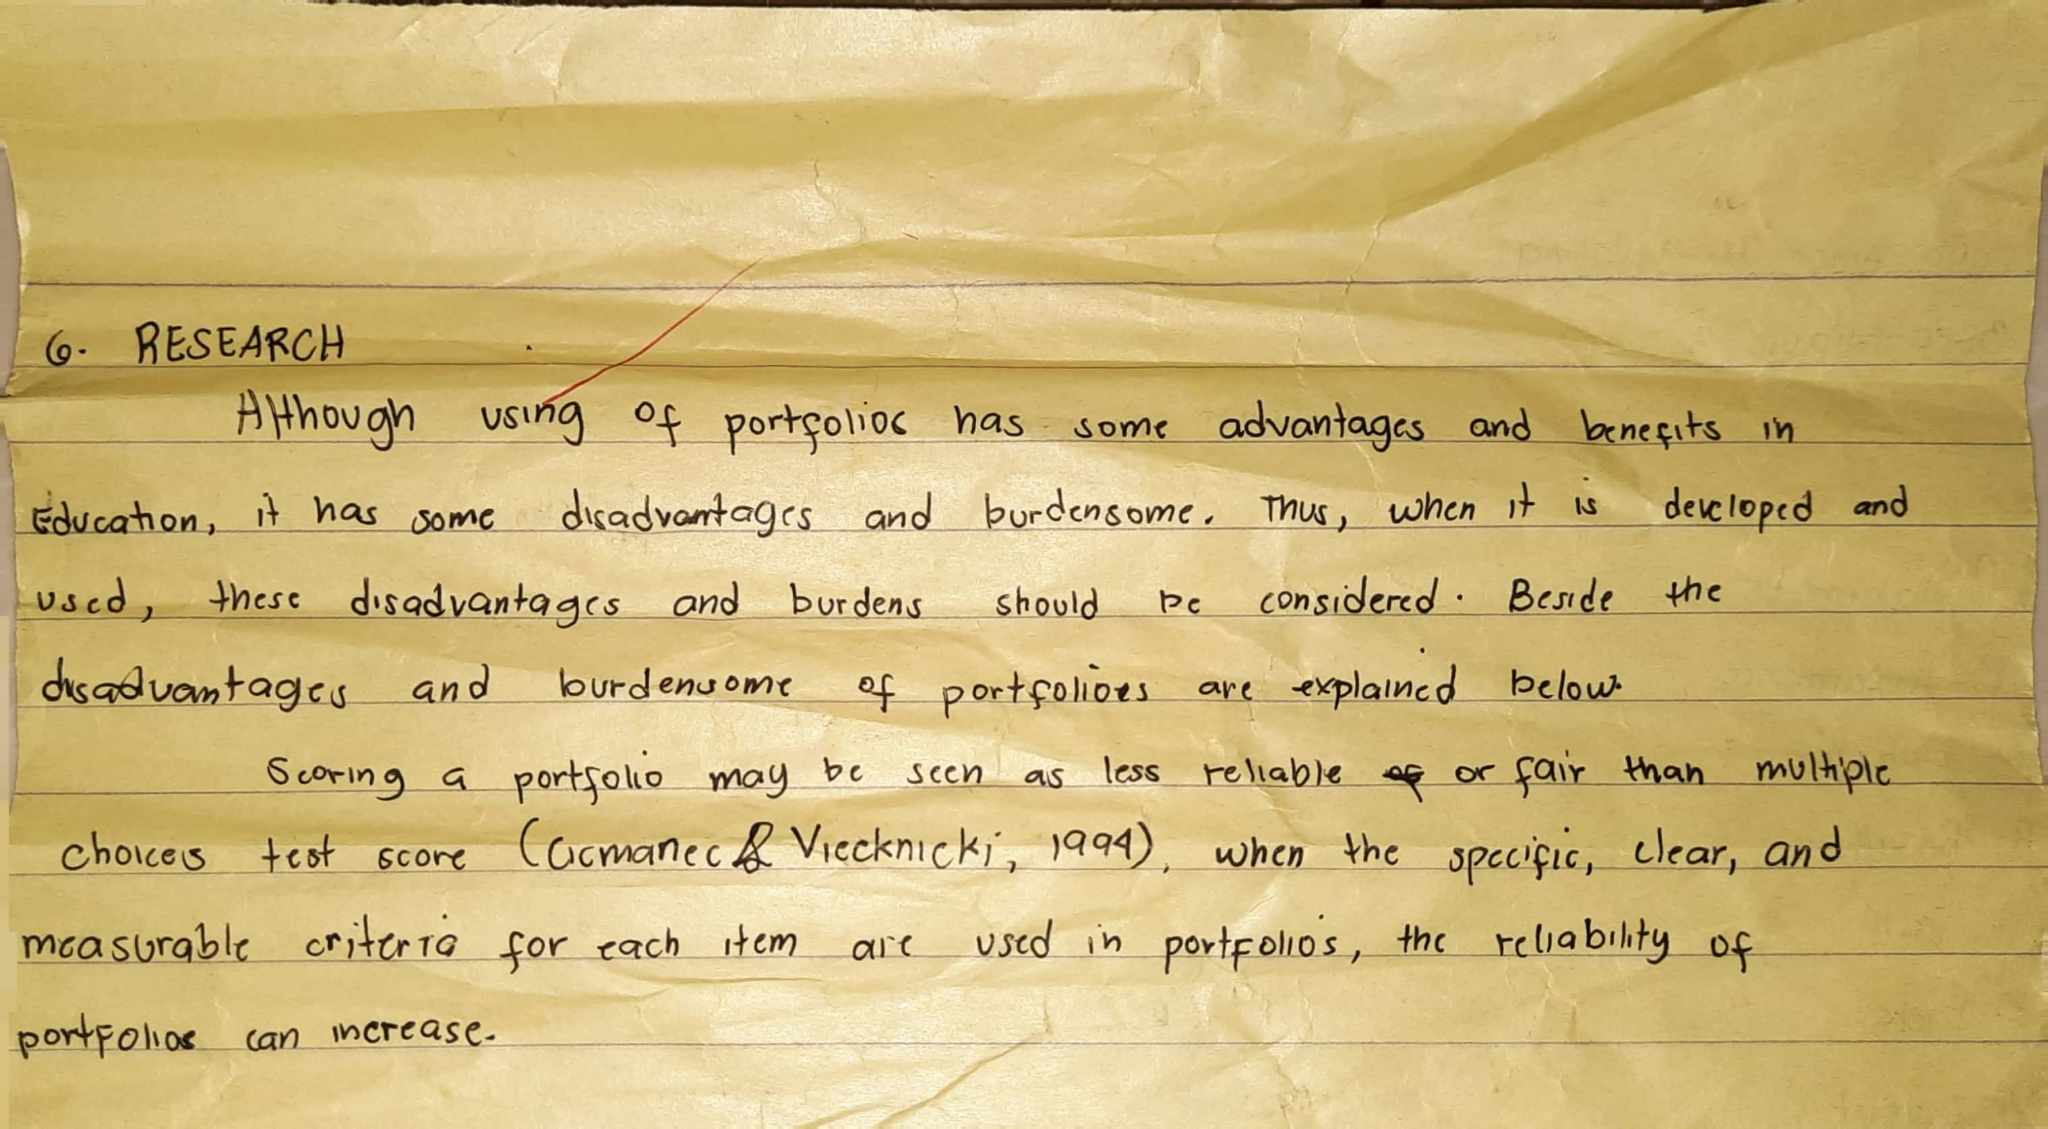 6. RESEARCH
Although using of portfolios has some advantages and benefits in
Education, it has some disadvantages and burdensome. Thus, when it is developed and
used, these disadvantages and burdens should be considered. Beside the
disadvantages and burdensome of portfolioes are explained below.
Scoring a portfolio may be seen as less reliable or fair than multiple
choices test score (Cicmanec & Viecknicki, 1994), when the specific, clear, and
measurable criteria for each item are used in portfolios, the reliability of
portfolios can increase.